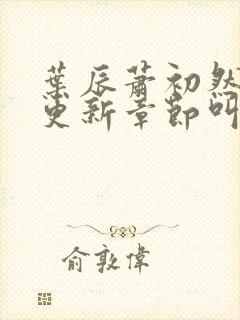 葉辰蕭初然
更新章節叫
俞敦偉